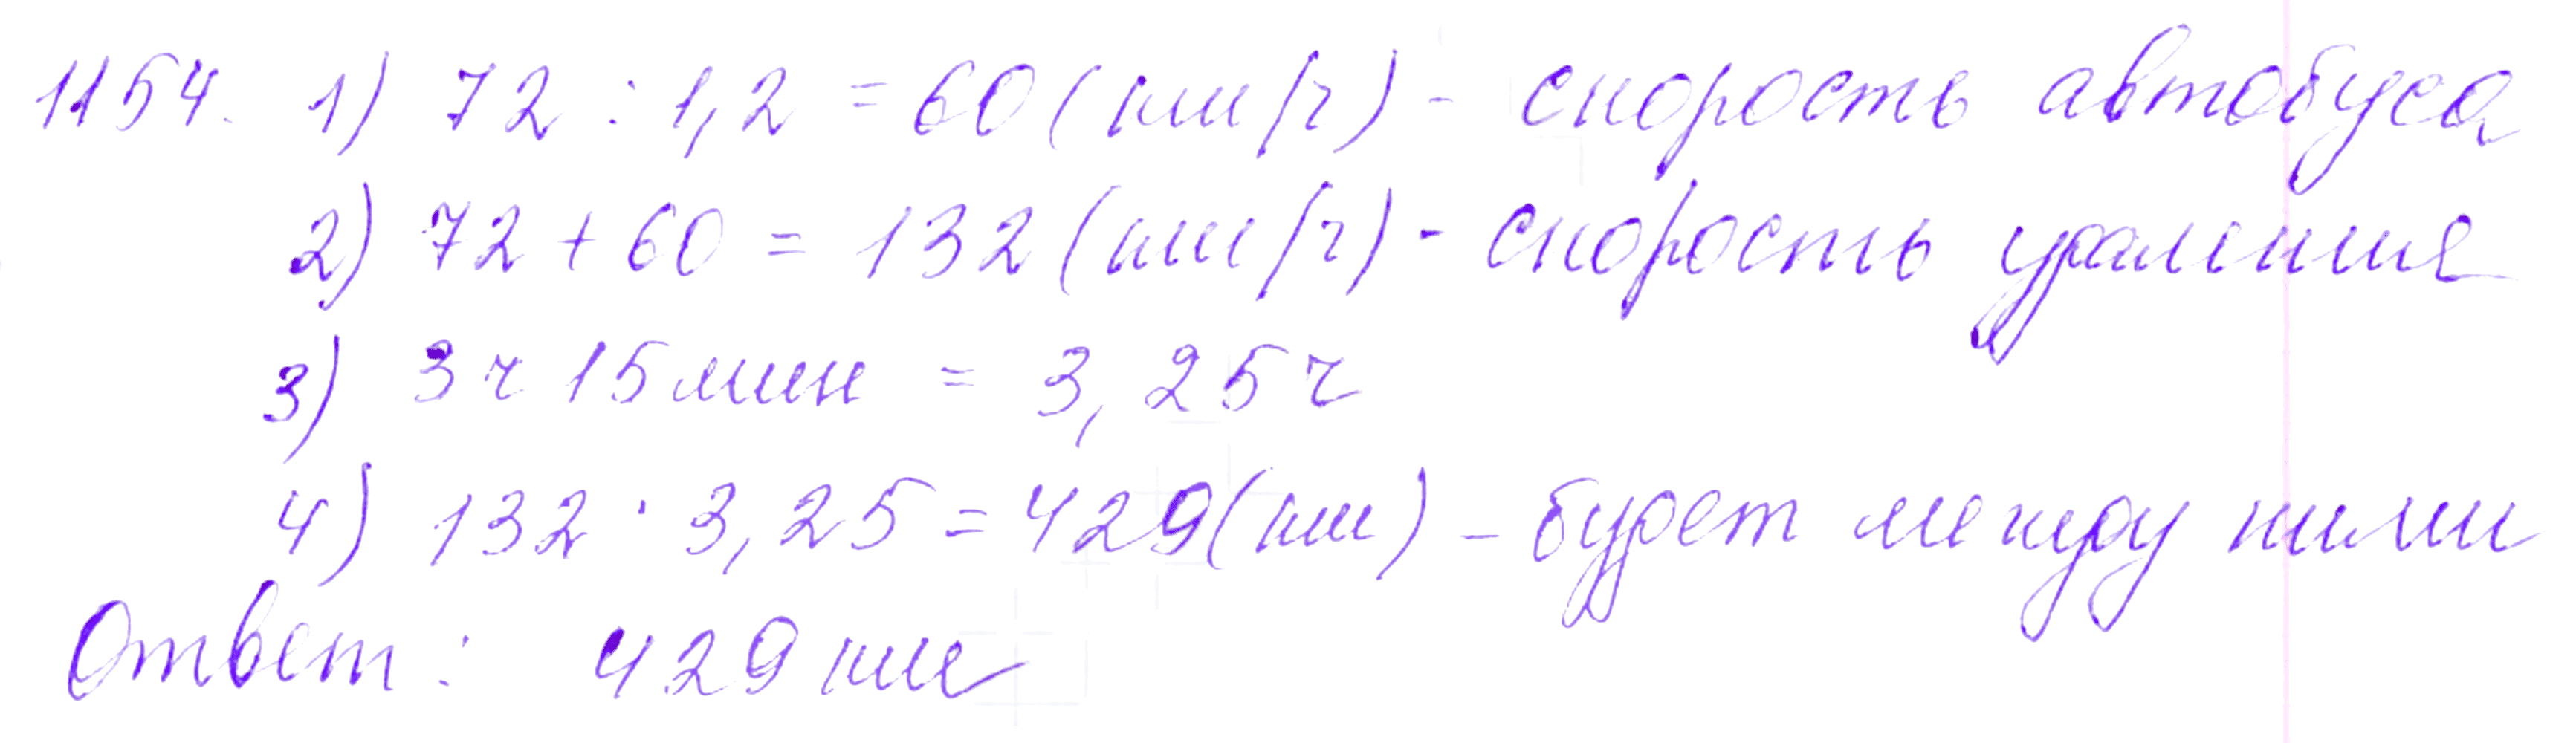 1154. 1) 72 : 1,2 = 60 (км/ч) - скорость автобуса
2) 72 + 60 = 132 (км/ч) - скорость удаления
3) 3 ч 15 мин = 3,25 ч
4) 132 · 3,25 = 429 (км) - будет между ними
Ответ: 429 км